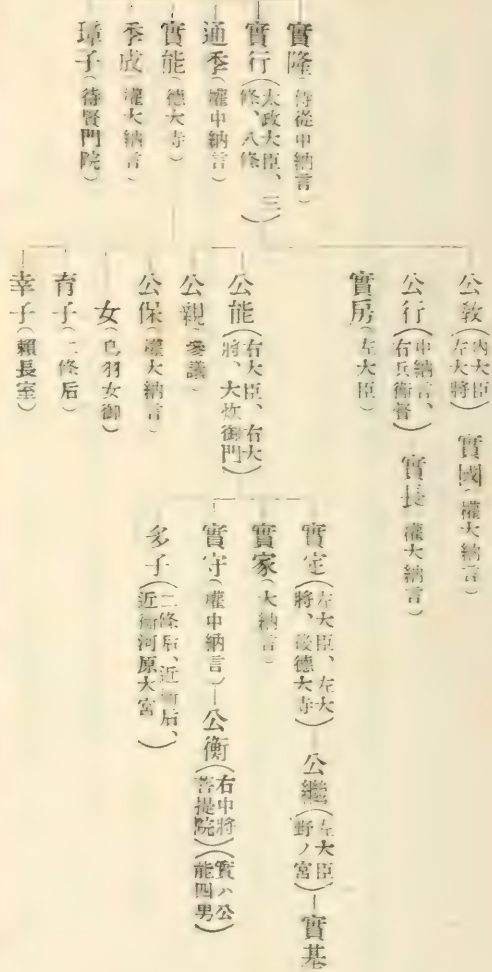 實隆(侍從中納言)
實行(太政大臣、三條、八條)
通季(權中納言)
實能(德大寺)
季成(權大納言)
璋子(待賢門院)
公敎(內大臣、左大將)
實國(權大納言)
公行(中納言、右兵衞督)
實長(權大納言)
實房(左大臣)
公能(右大臣、右大將、大炊御門)
公親(參議)
公保(權大納言)
女(鳥羽女御)
育子(二條后)
幸子(賴長室)
實定(左大臣、左大將、後德大寺)
公繼(左大臣、野ノ宮)
實基
實家(大納言)
實守(權中納言)
公衡(右中將、菩提院)(實ハ公能四男)
多子(二條后、近衞后、近衞河原大宮)